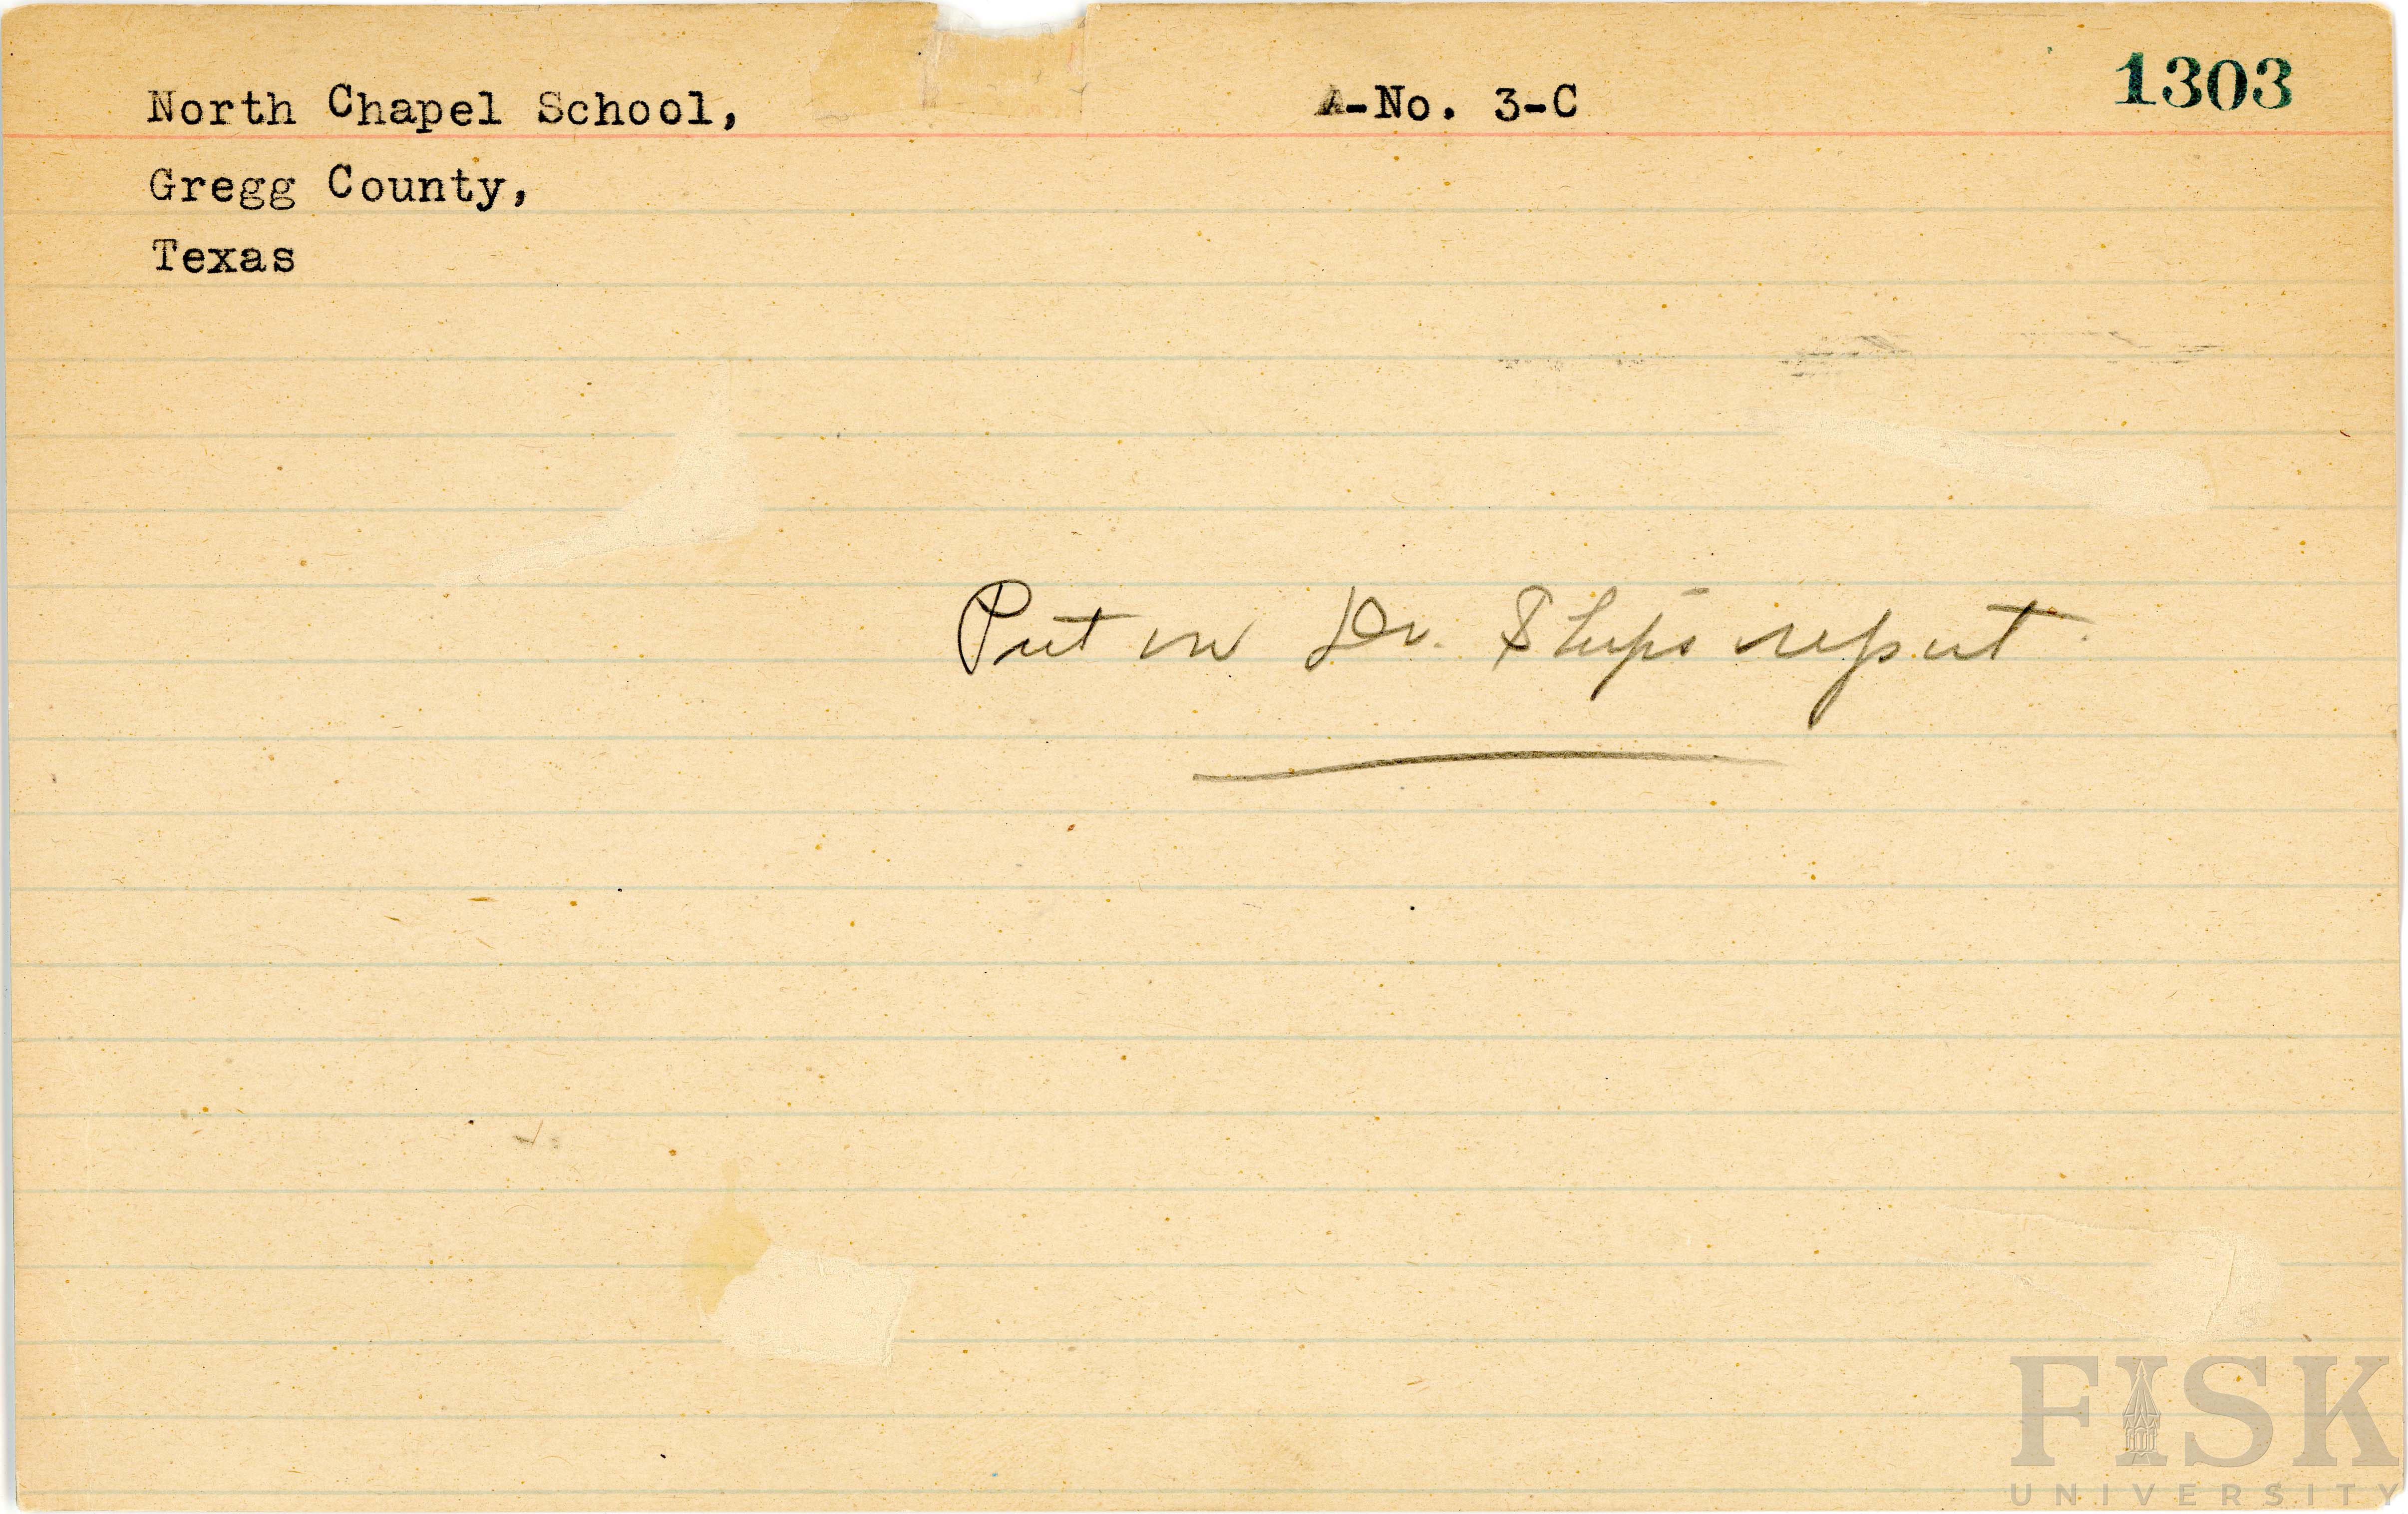 North Chapel School, A-No. 3-C 1303
Gregg County,
Texas
Put in Dr. Ship's report.
FISK
UNIVERSITY